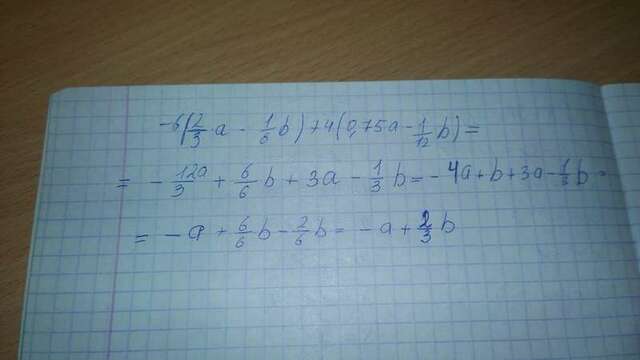 -6(2/3 a - 1/6 b) + 4(0,75a - 1/12 b) =
= - 12a/3 + 6/6 b + 3a - 1/3 b = - 4a + b + 3a - 1/3 b =
= - a + 6/6 b - 2/6 b = - a + 2/3 b